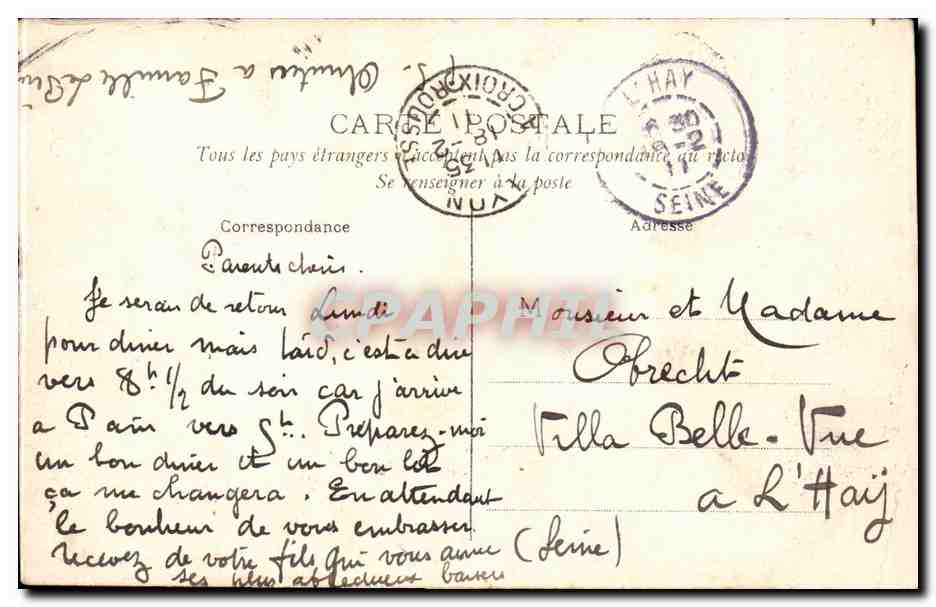 Amitiés a Famille
CARTE POSTALE
Tous les pays étrangers n'acceptent pas la correspondance au recto
Se renseigner à la poste
LYON
CROIX-ROUSSE
L'HAY
SEINE
Correspondance
Parents chéris.
Je serai de retour Lundi
pour diner mais tard, c'est a dire
vers 8h 1/2 du soir car j'arrive
a Paris vers 8h. Préparez-moi
un bon diner et un bon lit
ça me changera. En attendant
le bonheur de vous embrasser
recevez de votre fils qui vous aime
ses plus affectueux baisers
Adresse
Monsieur et Madame
Obrecht
Villa Belle-Vue
a L'Haÿ
(Seine)
CPAPHIL